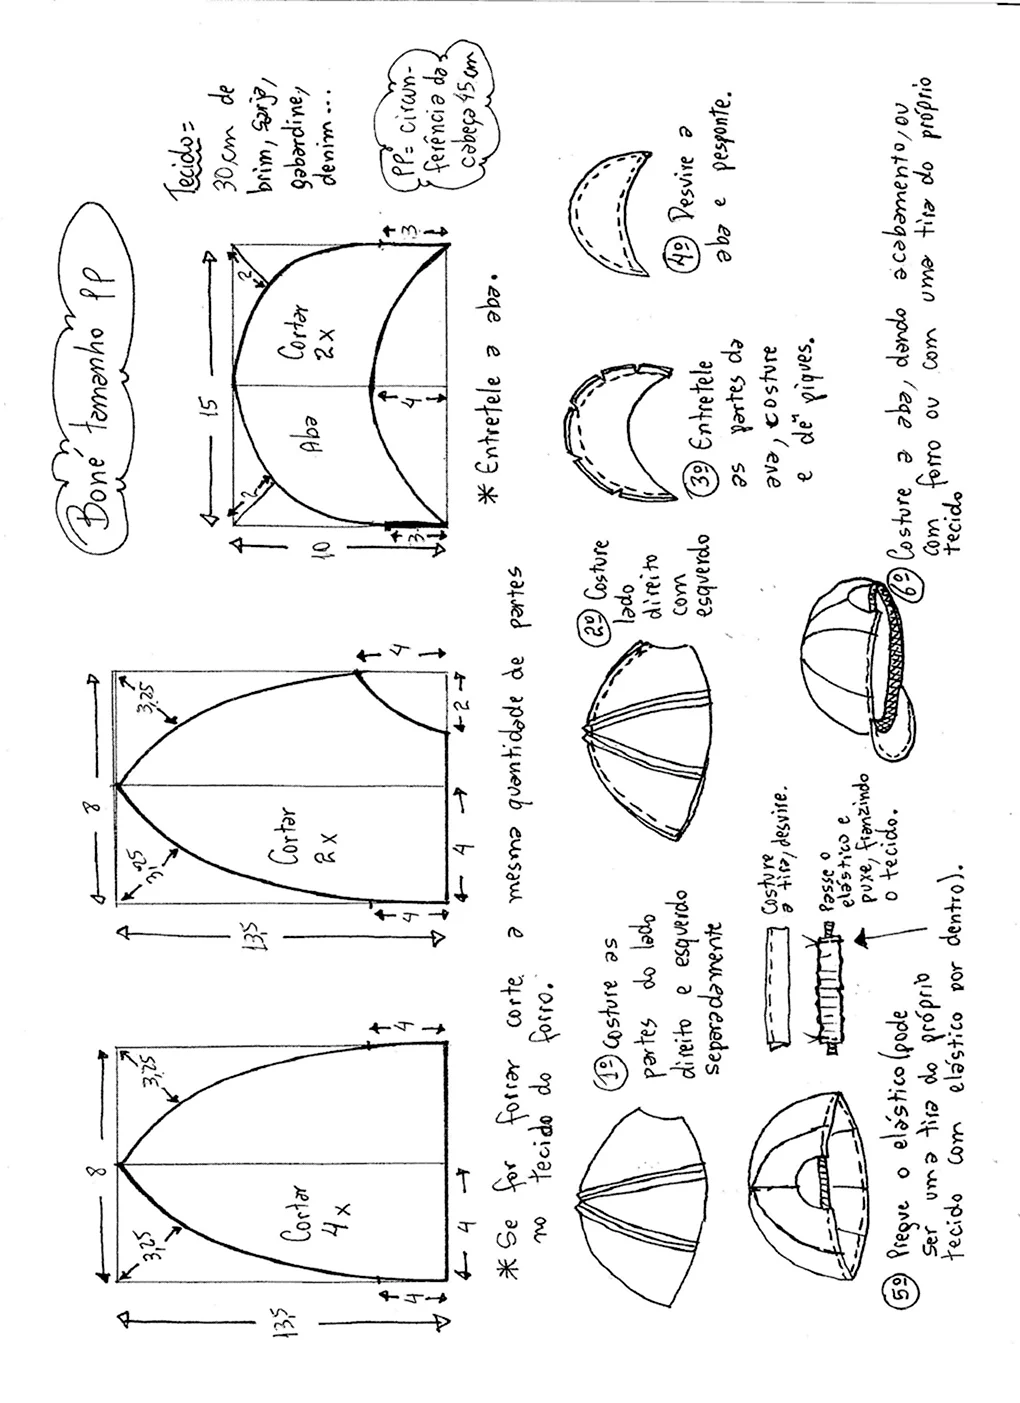 Boné tamanho PP
Tecido =
30cm de
brim, sarja,
gabardine,
denim...
PP = circun-
ferência da
cabeça 45cm
8
3,25
3,25
13,5
Cortar
4x
4
4
4
8
3,25
3,25
13,5
Cortar
2x
4
4
4
2
15
2
2
10
Aba
Cortar
2x
3
4
3
* Se for forrar corte a mesma quantidade de partes
no tecido do forro.
* Entretele a aba.
1º Costure as
partes do lado
direito e esquerdo
separadamente
2º Costure
lado
direito
com
esquerdo
3º Entretele
as partes da
ava, costure
e dê" piques.
4º Desvire a
aba e pesponte.
Costure
a tira, desvire.
Passe o
elástico e
puxe, franzindo
o tecido.
5º Pregue o elástico (pode
ser uma tira do próprio
tecido com elástico por dentro).
6º Costure a aba, dando acabamento, ou
com forro ou com uma tira do próprio
tecido